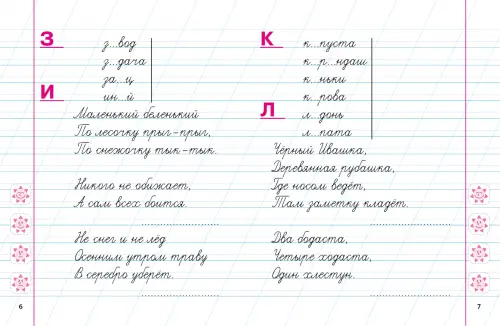 З
з...вод
з...дача
за...ц
И
ин...й
Маленький беленький
По лесочку прыг-прыг,
По снежочку тык-тык.
Никого не обижает,
А сам всех боится.
Не снег и не лёд,
Осенним утром траву
В серебро уберёт.
6
К
к...пуста
к...р...ндаш
к...ньки
к...рова
Л
л...донь
л...пата
Чёрный Ивашка,
Деревянная рубашка,
Где носом ведёт,
Там заметку кладёт.
Два бодаста,
Четыре ходаста,
Один хлестун.
7